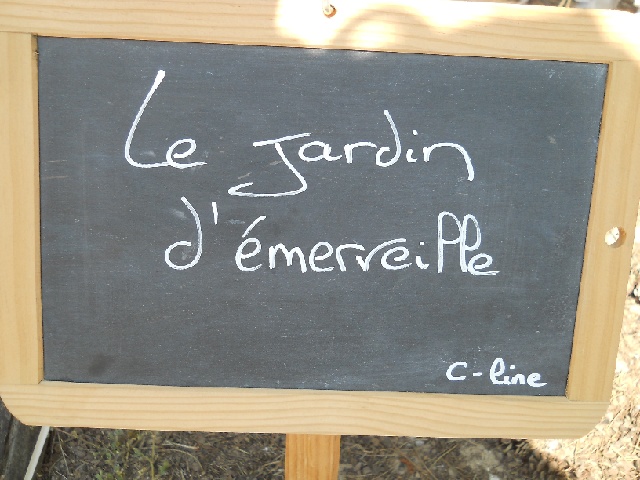 Le Jardin
d'émerveille
C-line